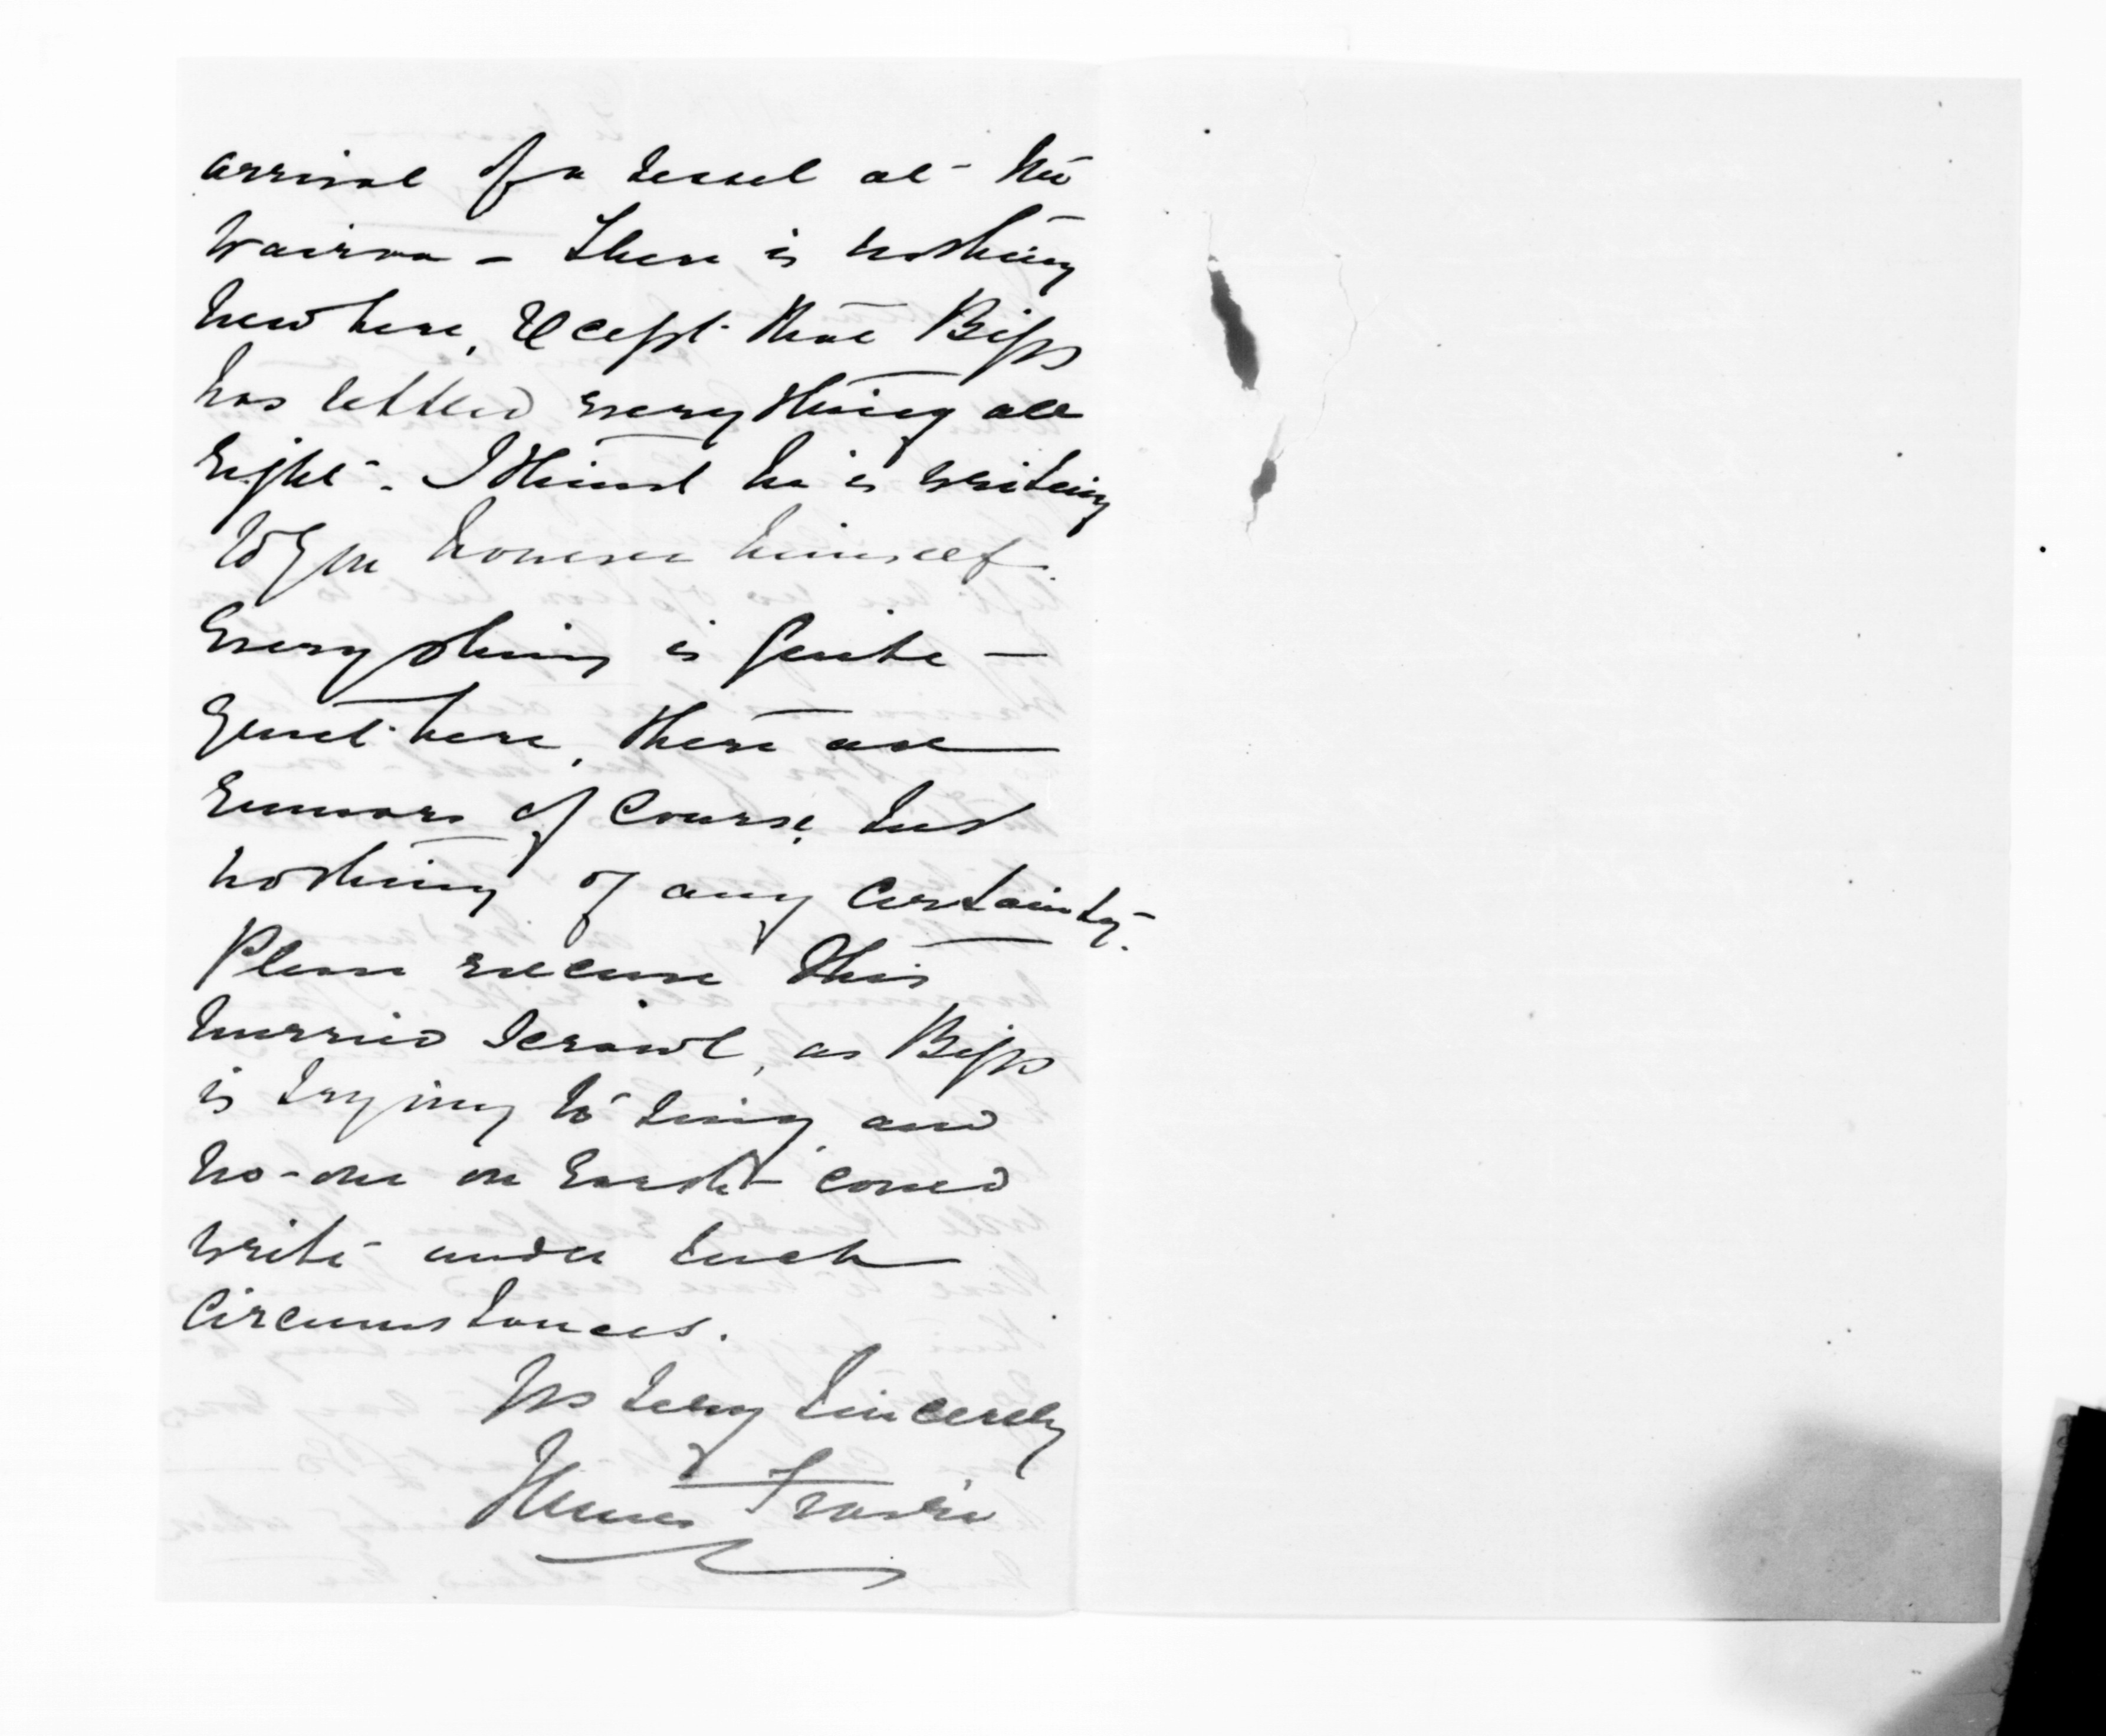 arrival of a vessel at the
Wairoa - There is nothing
new here, except that Biggs
has settled every thing all
right - I think he is writing
to you however himself.
Every thing is quite -
quiet here, there are
rumors of course, but
nothing of any certainty.
Please excuse this
hurried scrawl, as Biggs
is trying to sing, and
no-one on Earth could
write under such
circumstances.
Yrs very sincerely
James